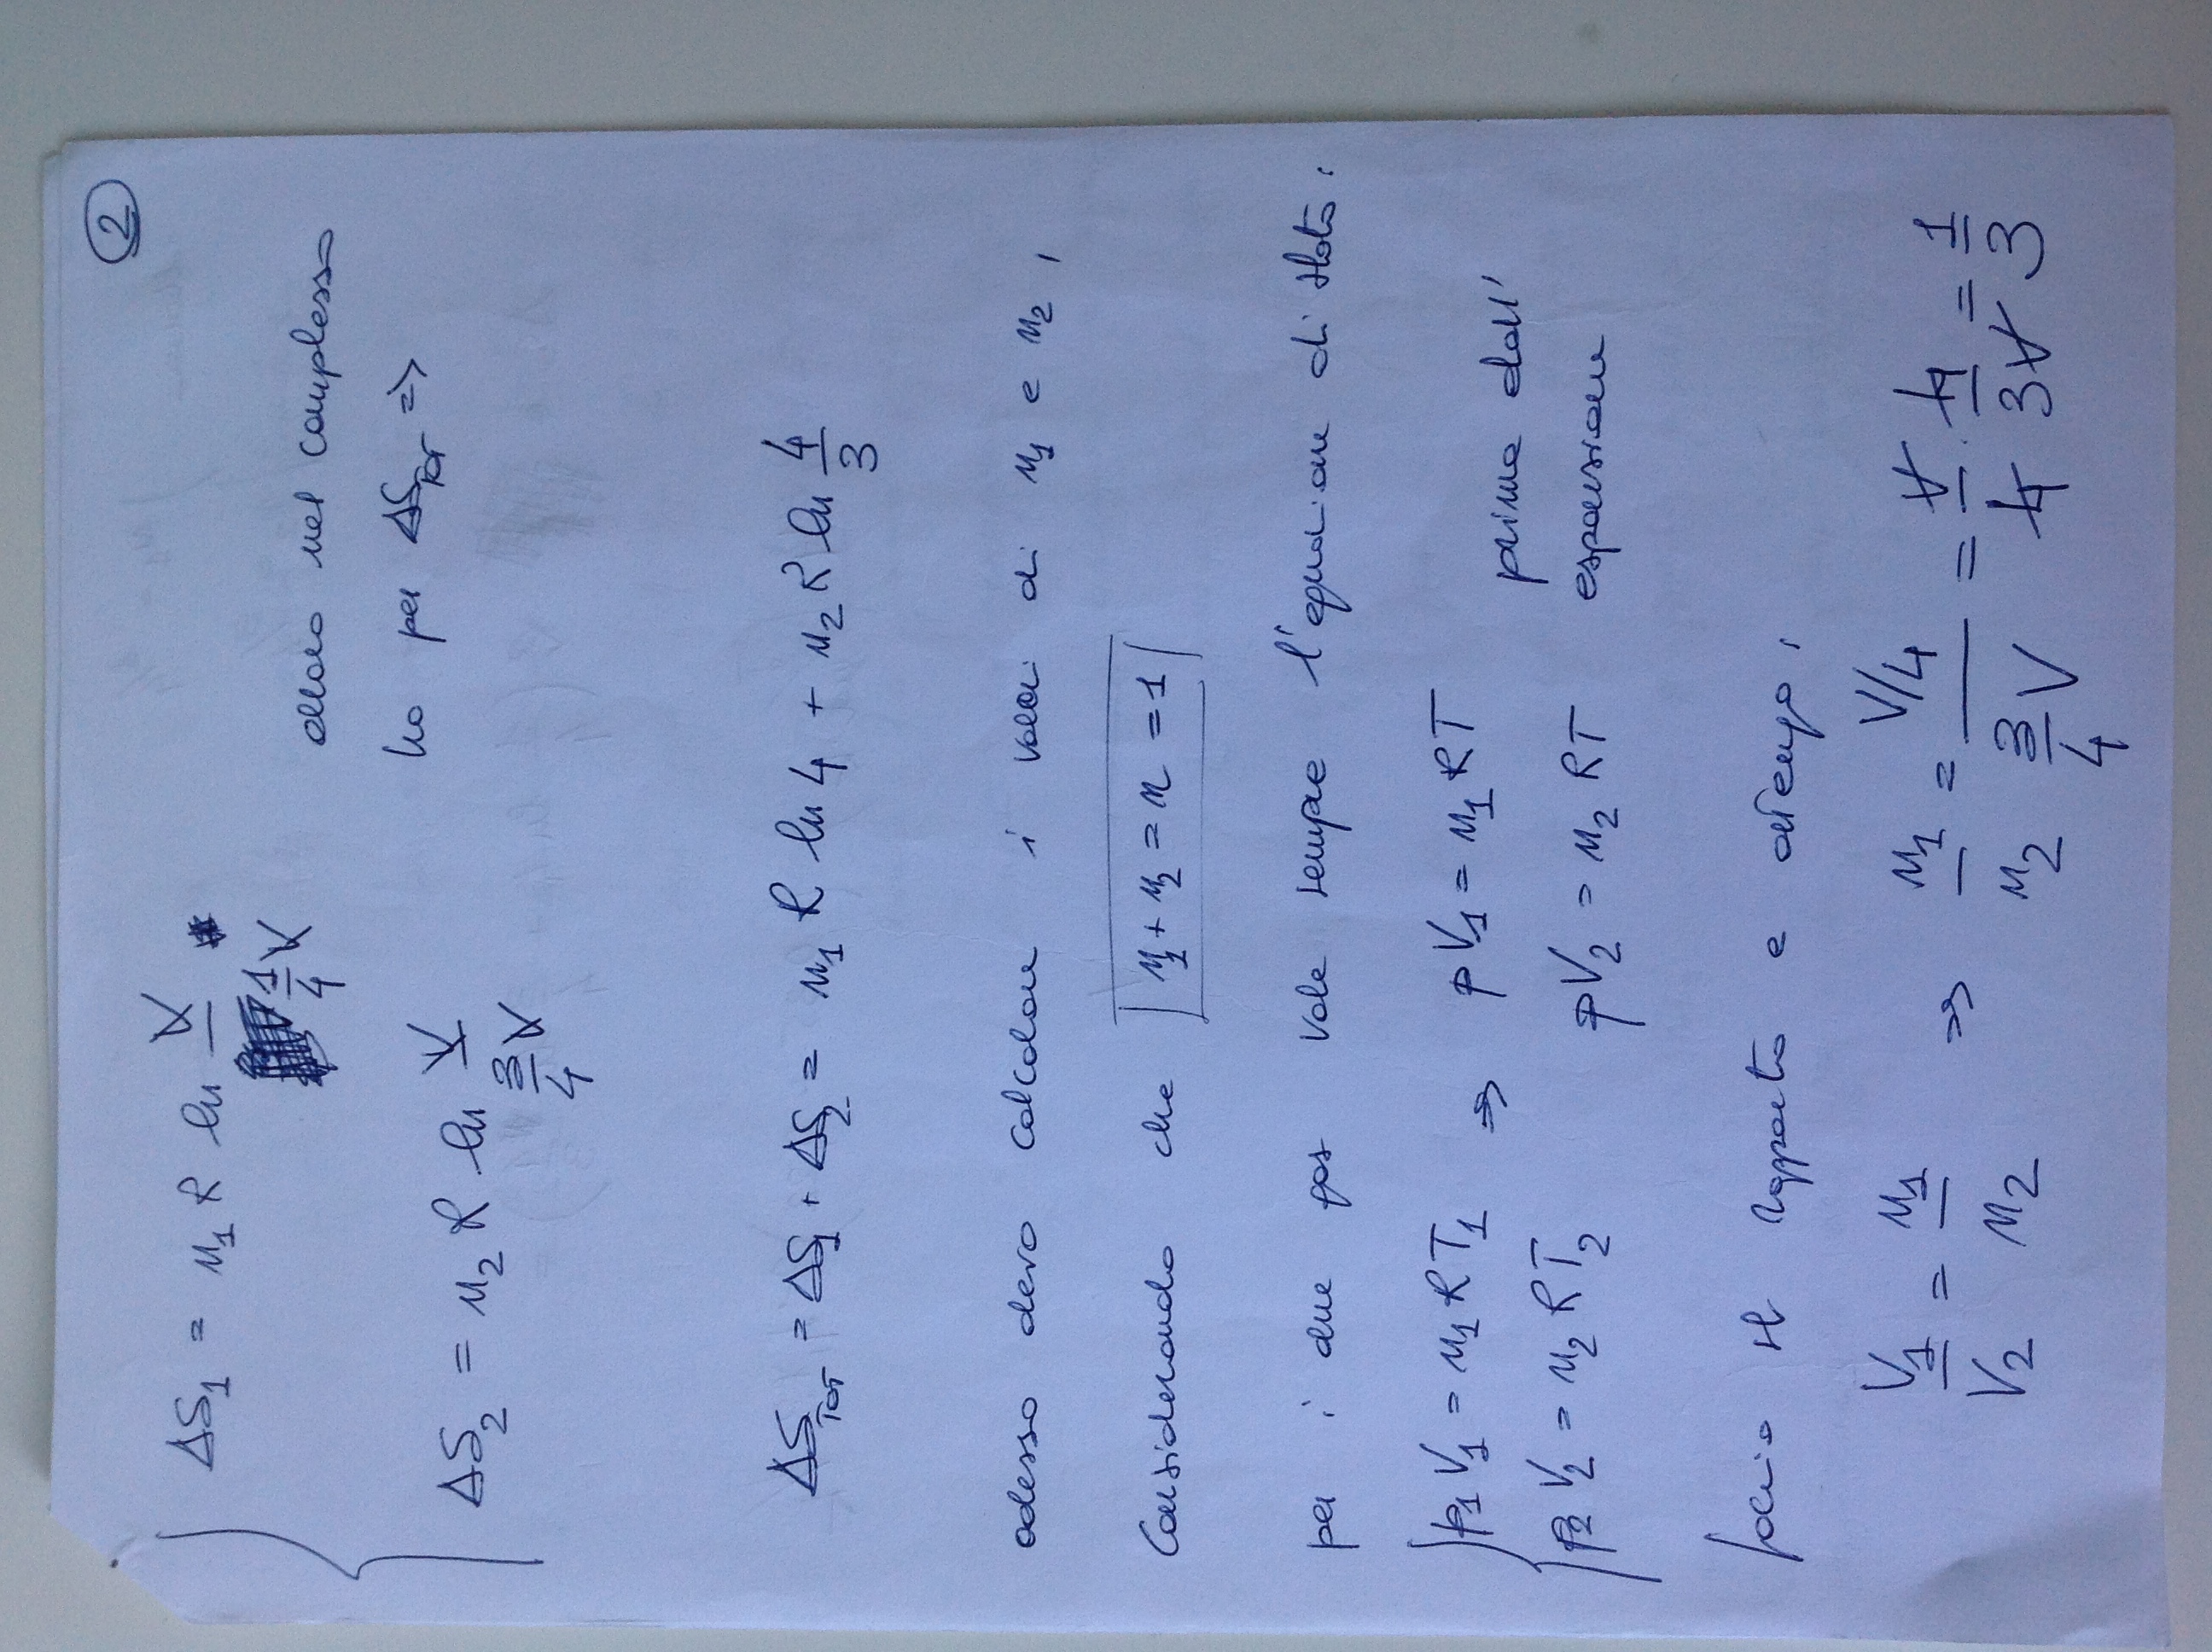 2
ΔS₁ = n₁ R ln V / (1/4 V)
allora nel complesso
ho per ΔS_TOT ⇒
ΔS₂ = n₂ R ln V / (3/4 V)
ΔS_TOT = ΔS₁ + ΔS₂ = n₁ R ln 4 + n₂ R ln 4/3
adesso devo calcolare i valori di n₁ e n₂,
Considerando che n₁ + n₂ = n = 1
per i due gas vale sempre l'equazione di stato:
p₁ V₁ = n₁ R T₁ ⇒ p V₁ = n₁ R T
prima dell'
p₂ V₂ = n₂ R T₂ p V₂ = n₂ R T
espansione
faccio il rapporto e ottengo:
V₁/V₂ = n₁/n₂ ⇒ n₁/n₂ = (V/4) / (3/4 V) = V/4 · 4/3V = 1/3